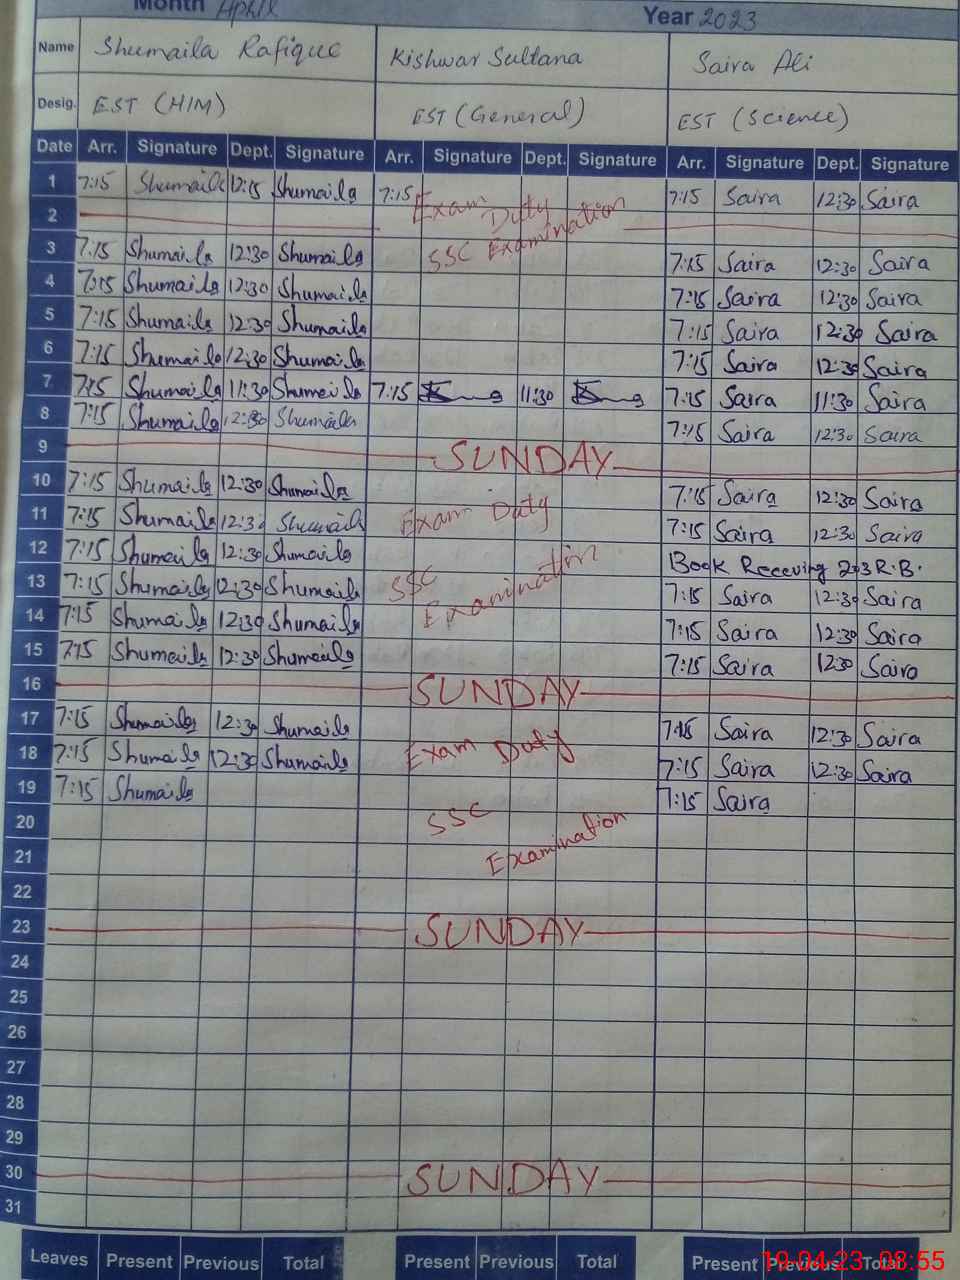 Month April Year 2023
Name Shumaila Rafique Kishwar Sultana Saira Ali
Desig. EST (HIM) EST (General) EST (Science)
Date Arr. Signature Dept. Signature Arr. Signature Dept. Signature Arr. Signature Dept. Signature
1 7:15 Shumaila 12:15 Shumaila 7:15 Exam Duty 7:15 Saira 12:30 Saira
2
SSC Examination
3 7:15 Shumaila 12:30 Shumaila 7:15 Saira 12:30 Saira
4 7:15 Shumaila 12:30 Shumaila 7:15 Saira 12:30 Saira
5 7:15 Shumaila 12:30 Shumaila 7:15 Saira 12:30 Saira
6 7:15 Shumaila 12:30 Shumaila 7:15 Saira 12:30 Saira
7 7:15 Shumaila 11:30 Shumaila 7:15 11:30 7:15 Saira 11:30 Saira
8 7:15 Shumaila 12:30 Shumaila 7:15 Saira 12:30 Saira
9 SUNDAY
10 7:15 Shumaila 12:30 Shumaila 7:15 Saira 12:30 Saira
11 7:15 Shumaila 12:30 Shumaila Exam Duty 7:15 Saira 12:30 Saira
12 7:15 Shumaila 12:30 Shumaila Book Receving 203 R.B.
13 7:15 Shumaila 12:30 Shumaila SSC Examination 7:15 Saira 12:30 Saira
14 7:15 Shumaila 12:30 Shumaila 7:15 Saira 12:30 Saira
15 7:15 Shumaila 12:30 Shumaila 7:15 Saira 1230 Saira
16 SUNDAY
17 7:15 Shumaila 12:30 Shumaila 7:15 Saira 12:30 Saira
18 7:15 Shumaila 12:30 Shumaila Exam Duty 7:15 Saira 12:30 Saira
19 7:15 Shumaila 7:15 Saira
20 SSC
21 Examination
22
23 SUNDAY
24
25
26
27
28
29
30 SUNDAY
31
Leaves Present Previous Total Present Previous Total Present Previous Total
19.04.23 08:55